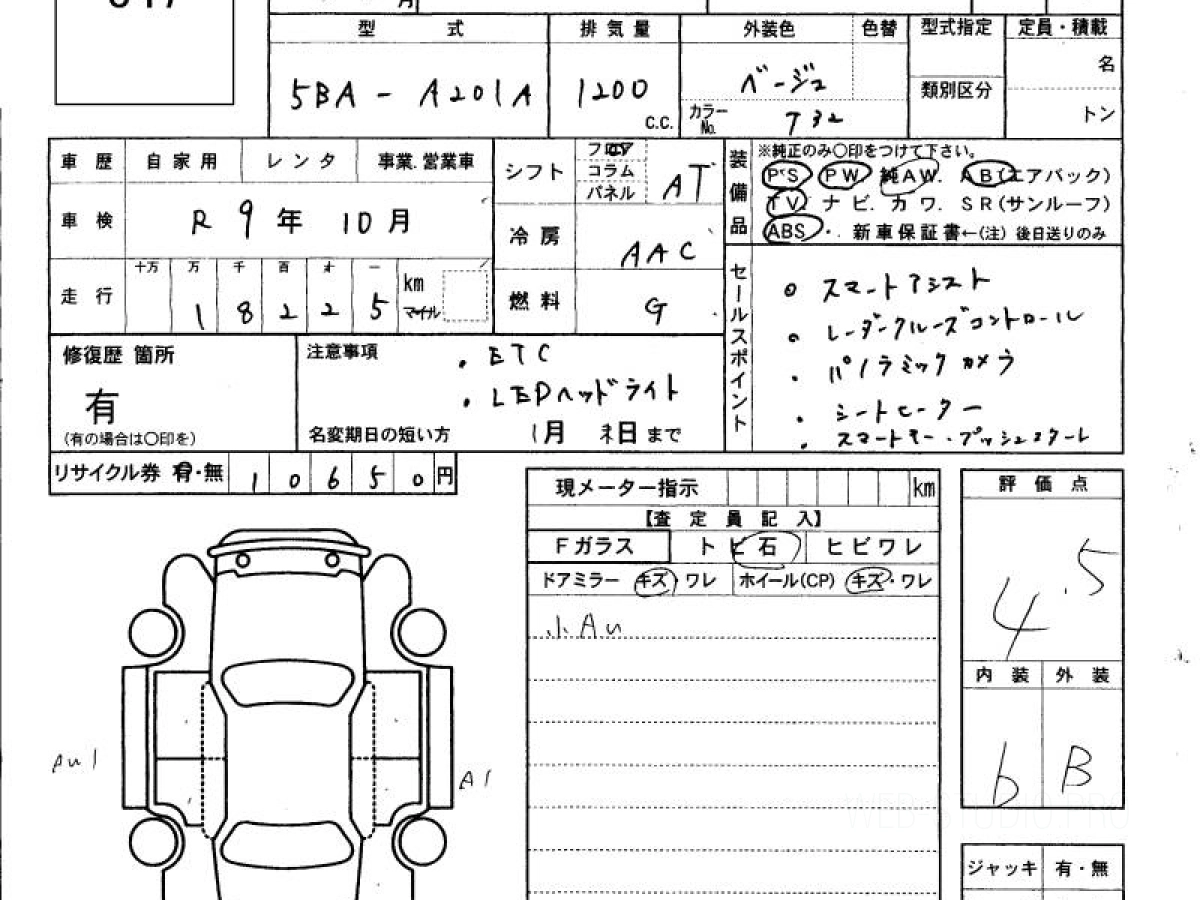 月
型 式 排気量 外装色 色替 型式指定 定員・積載
5BA - A201A 1200 c.c. ベージュ 名
カラーNo. T32 類別区分 トン
車歴 自家用 レンタ 事業.営業車
車検 R 9年 10月
走行 十万 万 千 百 十 一
1 8 2 2 5 km マイル
シフト フロア コラム パネル AT
冷房 AAC
燃料 G
装備品 ※純正のみ○印をつけて下さい。
PS PW. 純AW. AB(エアバック)
TV. ナビ. カワ. SR(サンルーフ)
ABS . 新車保証書←(注) 後日送りのみ
セールスポイント
○ スマートアシスト
○ レーダークルーズコントロール
・ パノラミックカメラ
・ シートヒーター
・ スマートキー・プッシュスタート
修復歴 箇所
有
(有の場合は○印を)
注意事項 ・ETC
・LEDヘッドライト
名変期日の短い方 1月 末日まで
リサイクル券 有・無 1 0 6 5 0 円
現メーター指示 km
【査定員記入】
Fガラス トビ石 ヒビワレ
ドアミラー キズ・ワレ ホイール(CP) キズ・ワレ
小AU
評価点
4.5
内装 外装
b B
AU1
A1
ジャッキ 有・無